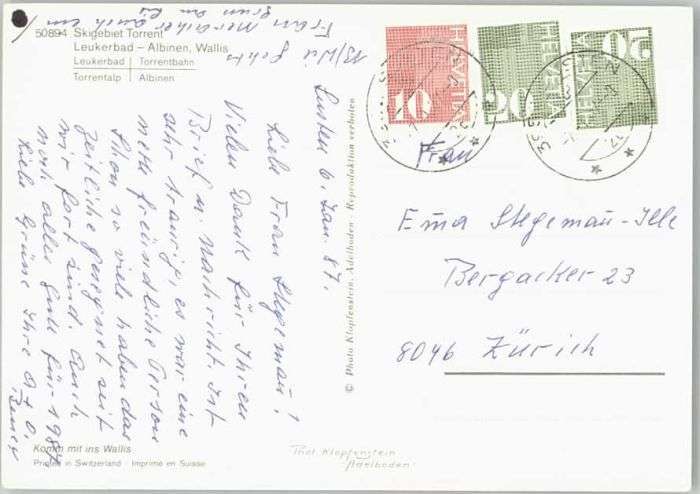 50894 Skigebiet Torrent
Leukerbad – Albinen, Wallis
Leukerbad | Torrentbahn
Torrentalp | Albinen
Susten 6. Jan. 87.
Liebe Frau Stegemau!
Vielen Dank für Ihren
Brief u. Nachricht. Ist
sehr traurig, es war eine
nette freundliche Person
Schon so viele haben das
Zeitliche gesegnet seit
wir fort sind. Auch
noch alles Gute für 1987
Liebe Grüsse Ihre
Frau
Komm mit ins Wallis
Printed in Switzerland - Imprimé en Suisse
© Photo Klopfenstein, Adelboden - Reproduktion verboten
Phot. Klopfenstein
Adelboden
10 HELVETIA
20 HELVETIA
50 HELVETIA
Frau
Erna Stegemau-Ille
Bergacker 23
8046 Zürich